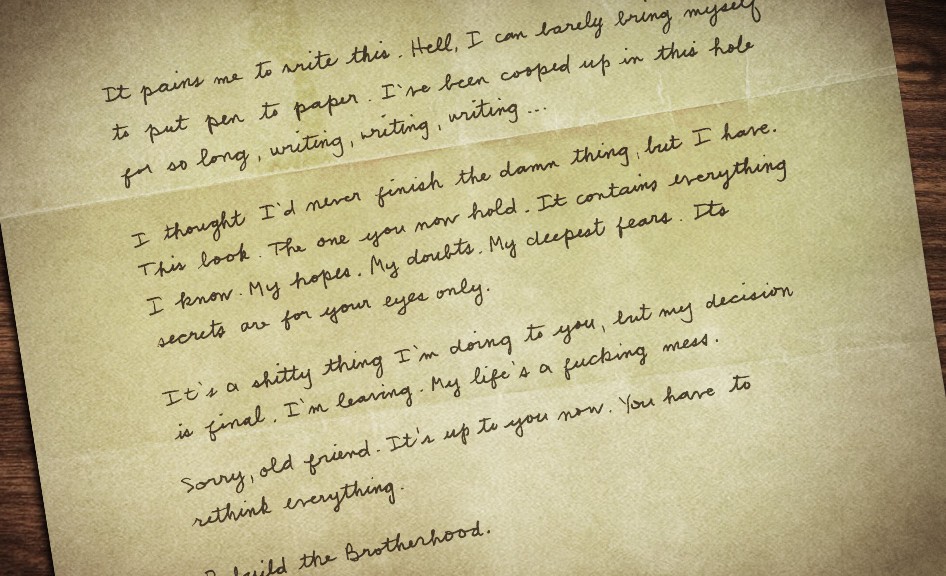 It pains me to write this. Hell, I can barely bring myself
to put pen to paper. I've been cooped up in this hole
for so long, writing, writing, writing...
I thought I'd never finish the damn thing, but I have.
This book. The one you now hold. It contains everything
I know. My hopes. My doubts. My deepest fears. Its
secrets are for your eyes only.
It's a shitty thing I'm doing to you, but my decision
is final. I'm leaving. My life's a fucking mess.
Sorry, old friend. It's up to you now. You have to
rethink everything.
Rebuild the Brotherhood.